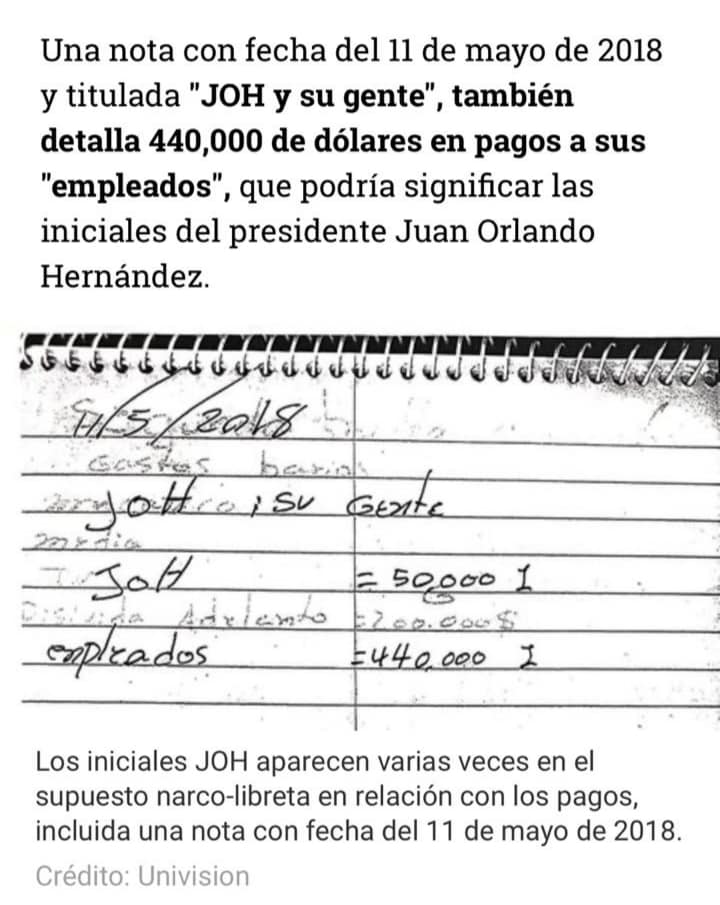 Una nota con fecha del 11 de mayo de 2018
y titulada "JOH y su gente", también
detalla 440,000 de dólares en pagos a sus
"empleados", que podría significar las
iniciales del presidente Juan Orlando
Hernández.
11/5/2018
Gastos
JOH i su Gente
media
JOH = 50,000 I
Adelanto =200.000$
empleados =440,000 I
Los iniciales JOH aparecen varias veces en el
supuesto narco-libreta en relación con los pagos,
incluida una nota con fecha del 11 de mayo de 2018.
Crédito: Univision